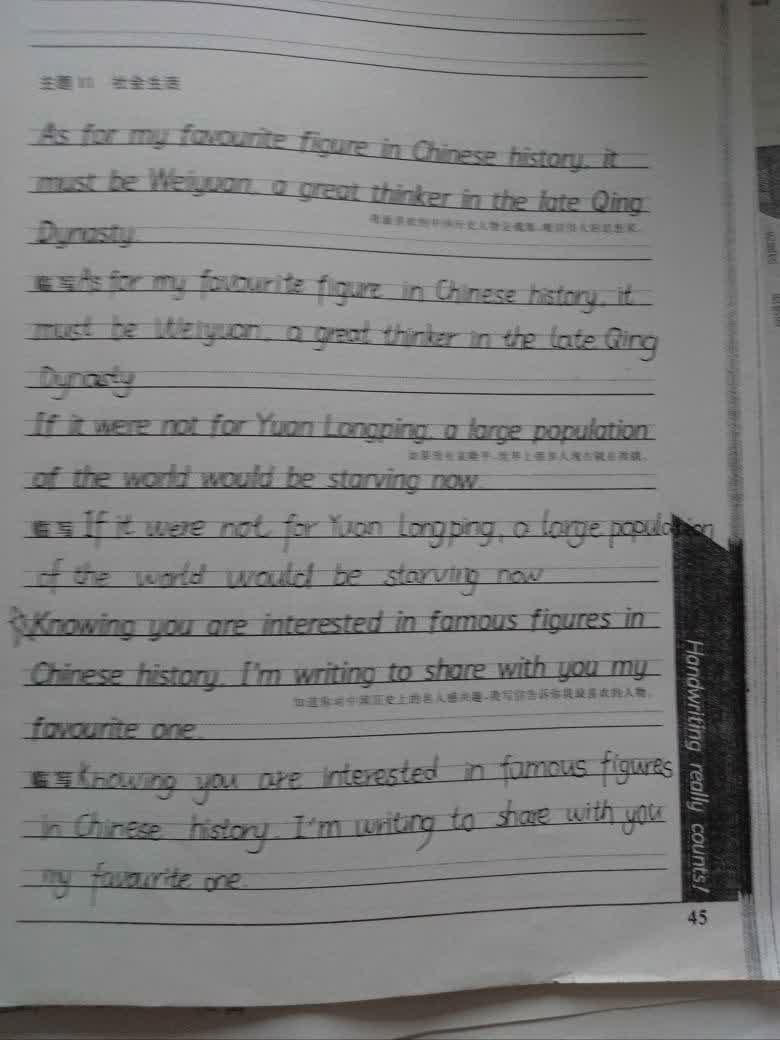 社会生活
As for my favourite figure in Chinese history, it
must be Weiyuan, a great thinker in the late Qing
我最喜欢的中国历史人物是魏源,晚清伟大的思想家。
Dynasty
临写 As for my favourite figure in Chinese history, it
must be Weiyuan, a great thinker in the late Qing
Dynasty
If it were not for Yuan Longping, a large population
of the world would be starving now.
临写 If it were not for Yuan Longping, a large population
of the world would be starving now
Knowing you are interested in famous figures in
Chinese history, I'm writing to share with you my
知道你对中国历史上的名人感兴趣,我写信告诉你我最喜欢的人物。
favourite one.
临写 Knowing you are interested in famous figures
in Chinese history, I'm writing to share with you
my favourite one.
Handwriting really counts!
45